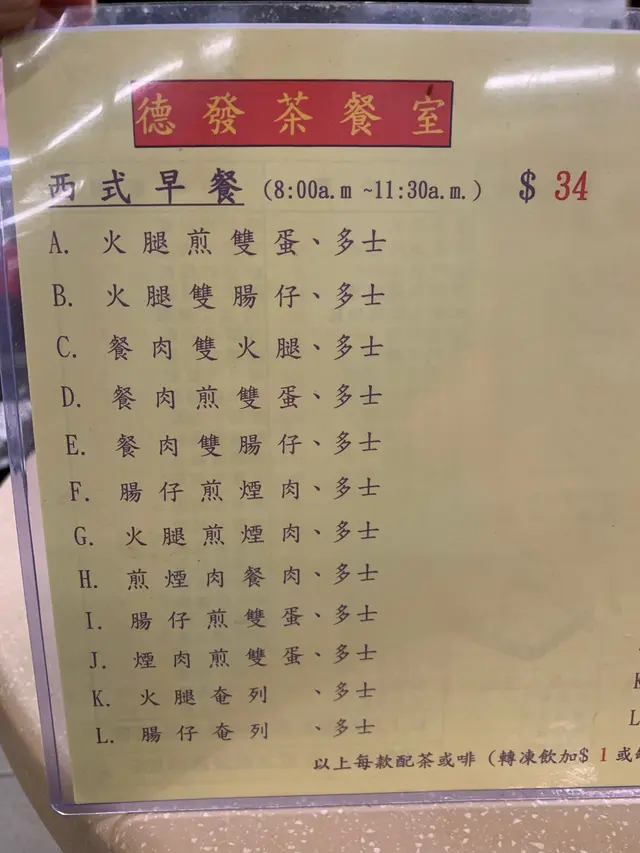 德發茶餐室
西式早餐 (8:00a.m ~11:30a.m.) $ 34
A. 火腿煎雙蛋、多士
B. 火腿雙腸仔、多士
C. 餐肉雙火腿、多士
D. 餐肉煎雙蛋、多士
E. 餐肉雙腸仔、多士
F. 腸仔煎煙肉、多士
G. 火腿煎煙肉、多士
H. 煎煙肉餐肉、多士
I. 腸仔煎雙蛋、多士
J. 煙肉煎雙蛋、多士
K. 火腿奄列 、多士
L. 腸仔奄列 、多士
以上每款配茶或啡 (轉凍飲加$ 1 或